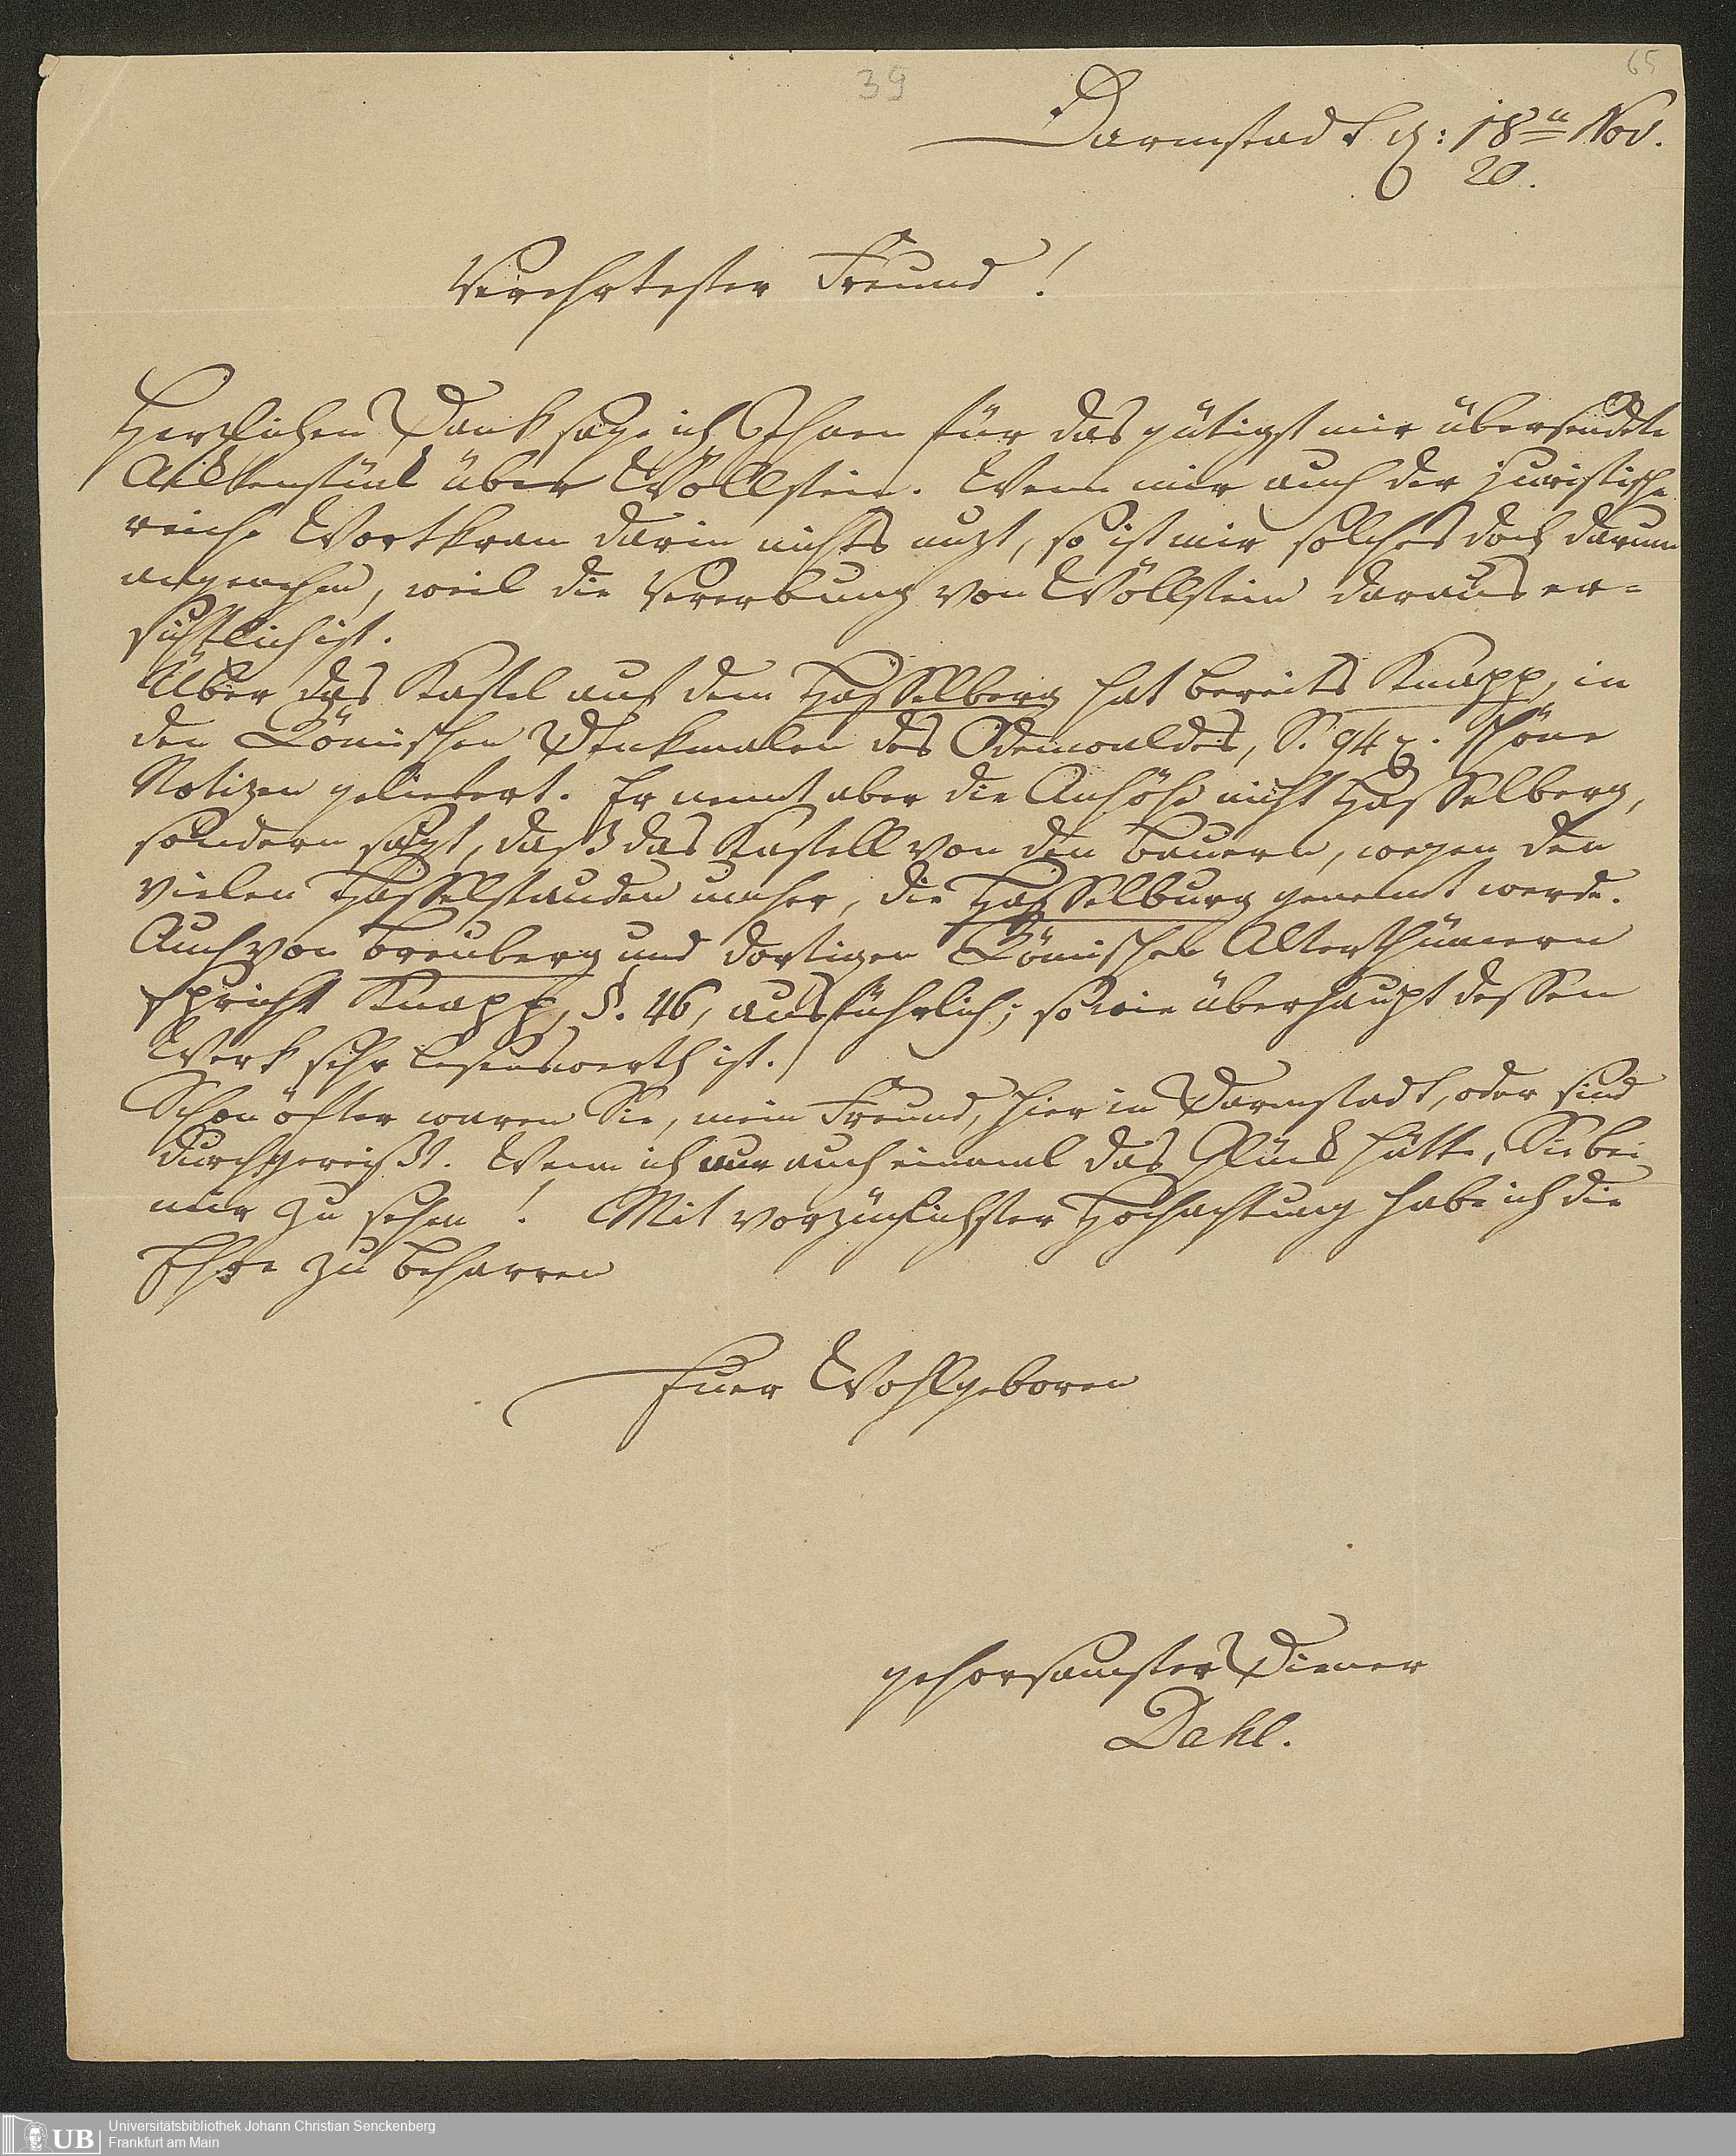 39
65
Darmstadt d: 18n Nov.
20.
Verehrtester Freund!
Herzlichen Dank sage ich Ihnen für das gütigst mir übersendete
Aktenstück über Wöllstein. Wenn mir auch der juristische
reiche Wortkram darin nichts nuzt, so ist mir solches doch darum
angenehm, weil die Vererbung von Wöllstein daraus er-
sichtlich ist.
Über das Kastel auf dem Hasselberg hat bereits Knapp, in
den Römischen Denkmalen des Odenwaldes, S. 94 schöne
Notizen geliefert. Er nennt aber die Anhöhe nicht Hasselberg,
sondern sagt, daß das Kastell von den Bauern, wegen den
vielen Hasselstauden umher, die Hasselburg genennt werde.
Auch von Breuberg und dortigen Römischen Alterthümern
spricht Knapp, §. 46, ausführlich; so wie überhaupt dessen
Werk sehr lesenswerth ist.
Schon öfter waren Sie, mein Freund, hier in Darmstadt, oder sind
durchgereißt. Wenn ich nur auch einmal das Glück hätte, Sie bei
mir zu sehen! Mit vorzüglichster Hochachtung habe ich die
Ehre zu beharren
Euer Wohlgeboren
gehorsamster Diener
Dahl.
UB
Universitätsbibliothek Johann Christian Senckenberg
Frankfurt am Main